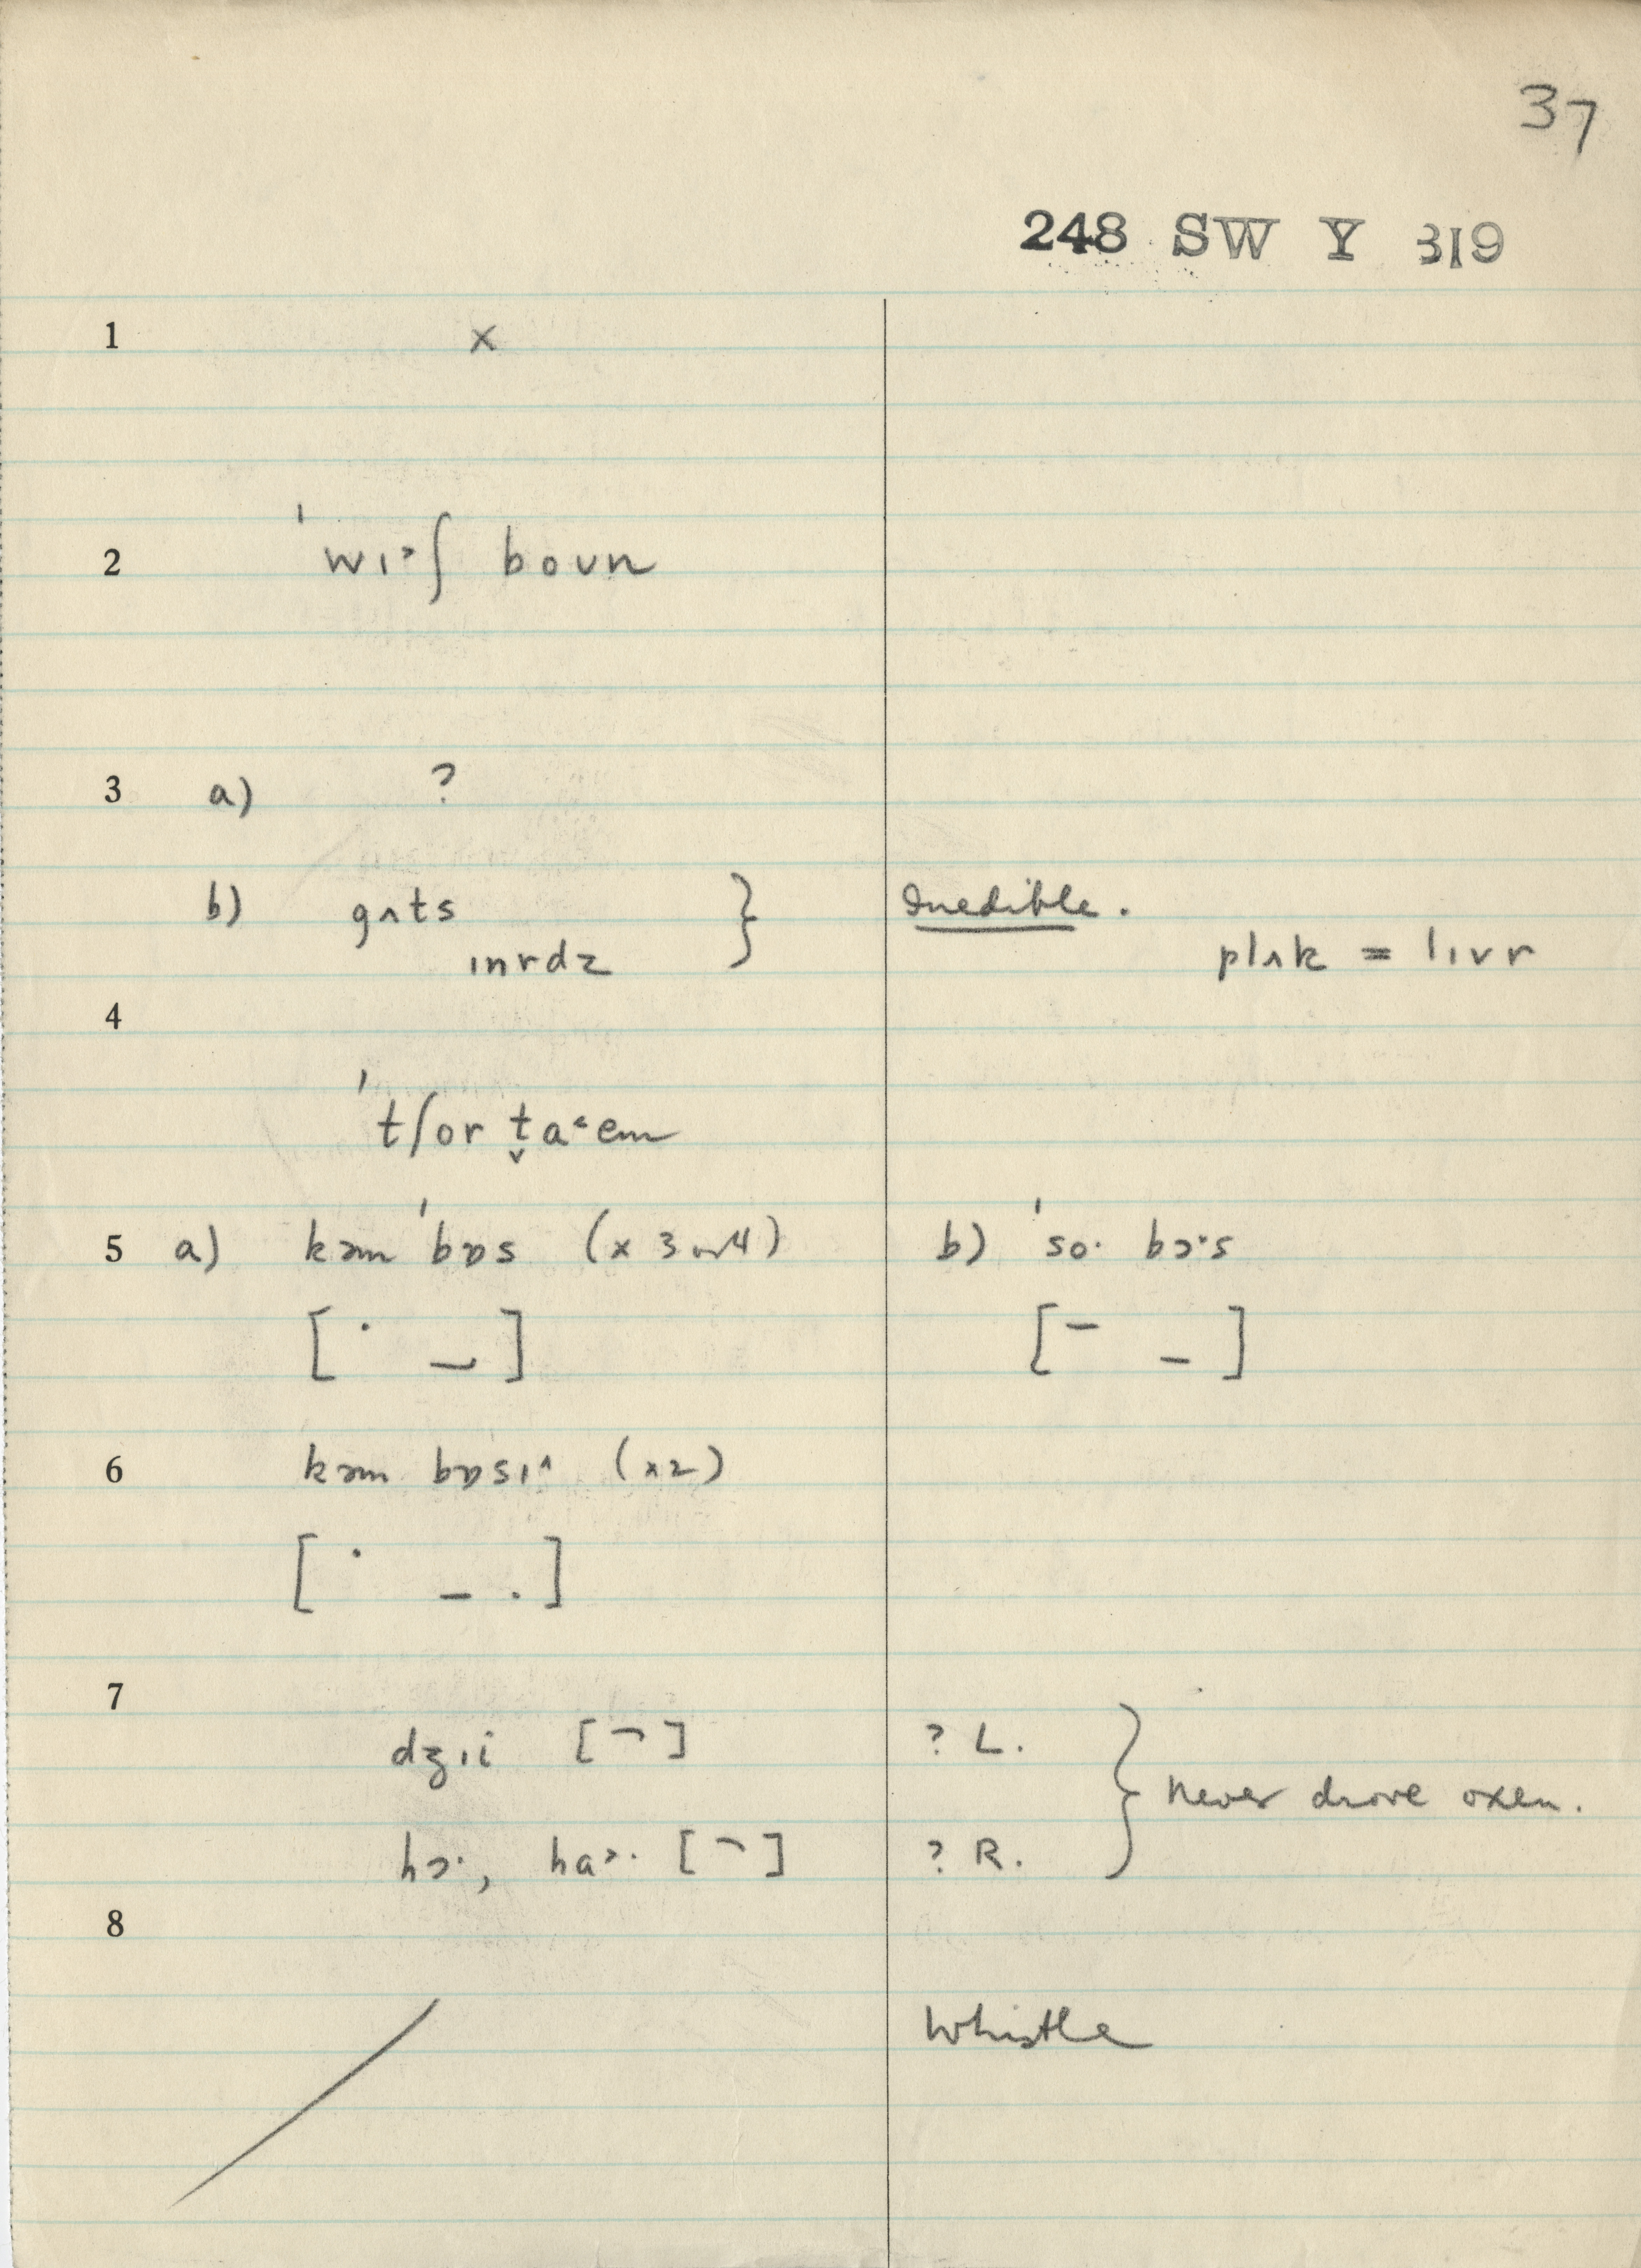 37
248 SW Y 319
1 x
2 ˈwɪ˃ʃ boun
3 a) ?
b) gʌts } Inedible.
ɪnrdz plʌk = lɪvr
4
ˈtʃor t̬a˂em
5 a) kəm ˈbɒs (x 3 or 4) b) ˈso· bɔ·s
[ · _ ] [ – _ ]
6 kəm bɒsɪ^ (x2)
[ · – . ]
7
dʒɪi [ ¬ ] ? L. } Never drove oxen.
hɔ·, ha˃· [ ¬ ] ? R.
8
Whistle